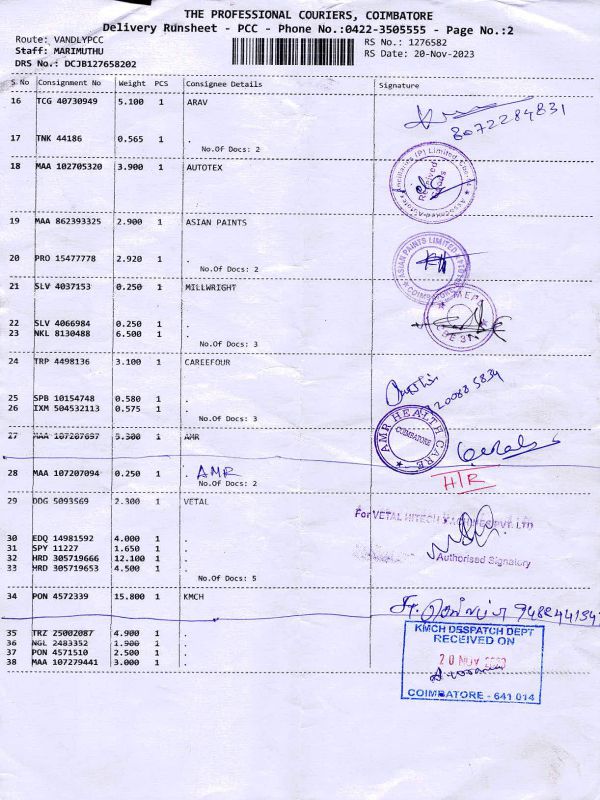 THE PROFESSIONAL COURIERS, COIMBATORE
Delivery Runsheet - PCC - Phone No.:0422-3505555 - Page No.:2
Route: VANDLYPCC
Staff: MARIMUTHU
DRS No.: DCJB127658202
RS No.: 1276582
RS Date: 20-Nov-2023
S No Consignment No Weight PCS Consignee Details Signature
16 TCG 40730949 5.100 1 ARAV
8072284831
17 TNK 44186 0.565 1 .
No.Of Docs: 2
18 MAA 102705320 3.900 1 AUTOTEX
Received
19 MAA 862393325 2.900 1 ASIAN PAINTS
20 PRO 15477778 2.920 1 .
No.Of Docs: 2
ASIAN PAINTS LIMITED
COIMBATORE
21 SLV 4037153 0.250 1 MILLWRIGHT
22 SLV 4066984 0.250 1 .
23 NKL 8130488 6.500 1 .
No.Of Docs: 3
24 TRP 4498136 3.100 1 CAREEFOUR
25 SPB 10154748 0.580 1 .
26 IXM 504532113 0.575 1 .
No.Of Docs: 3
AMR HEALTH CARE
COIMBATORE
27 MAA 107207697 5.300 1 AMR
28 MAA 107207094 0.250 1 . AMR
No.Of Docs: 2
HTR
29 DDG 5093569 2.300 1 VETAL
For VETAL HITECH MACHINES PVT. LTD
30 EDQ 14981592 4.000 1 .
31 SPY 11227 1.650 1 .
32 HRD 305719666 12.100 1 .
33 HRD 305719653 4.500 1 .
No.Of Docs: 5
Authorised Signatory
34 PON 4572339 15.800 1 KMCH
35 TRZ 25002087 4.900 1 .
36 NGL 2483352 1.900 1 .
37 PON 4571510 2.500 1 .
38 MAA 107279441 3.000 1 .
KMCH DESPATCH DEPT
RECEIVED ON
20 NOV 2023
COIMBATORE - 641 014